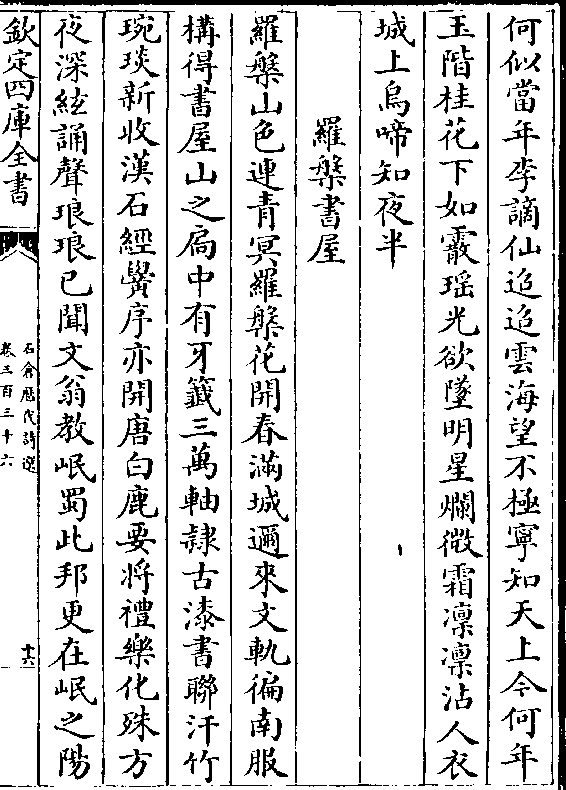 何似當年李謫仙迢迢雲海望不極寧知天上今何年
玉階桂花下如霰瑶光欲墜明星爛微霜凛凛沾人衣
城上烏啼知夜半
羅槃書屋
羅槃山色連青冥羅槃花開春滿城邇來文軌徧南服
構得書屋山之扃中有牙籖三萬軸隸古漆書聯汗竹
琬琰新收漢石經黌序亦開唐白鹿要將禮樂化殊方
夜深絃誦聲琅琅已聞文翁教岷蜀此邦更在岷之陽
欽定四庫全書
石倉歷代詩選
卷三百三十六
十六